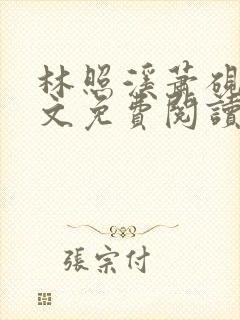 林照溪蕭硯
文免費閱讀
張宗付